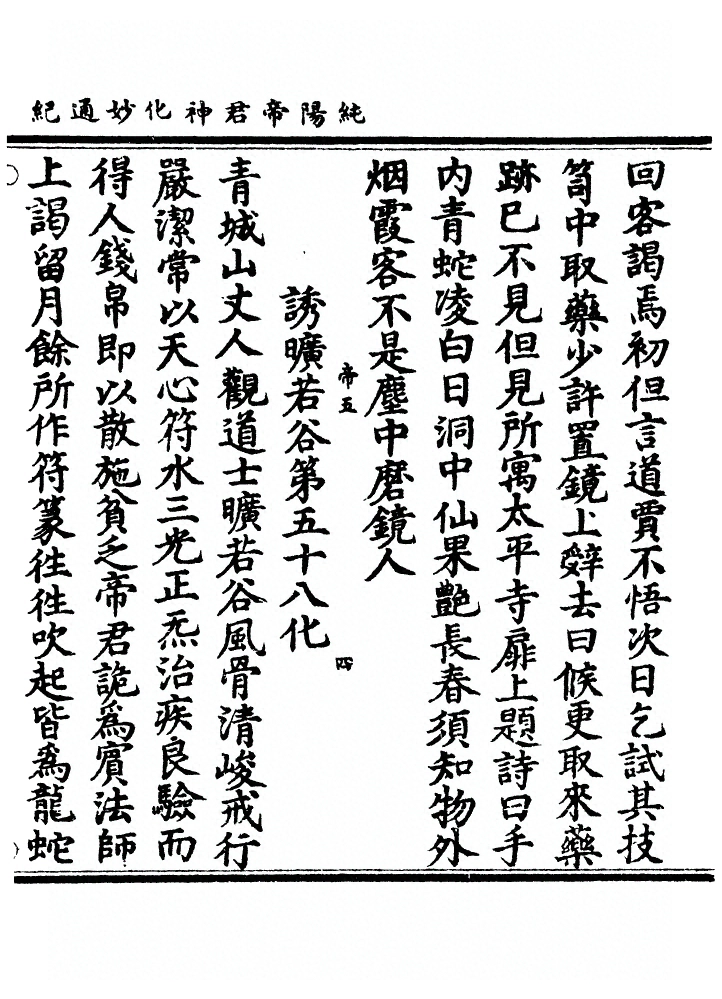 純陽帝君神化妙通紀
回客謁焉初但言道賈不悟次日乞試其技
笥中取藥少許置鏡上辤去曰候更取來藥
跡已不見但見所寓太平寺扉上題詩曰手
內青蛇凌白日洞中仙果艷長春須知物外
烟霞客不是塵中磨鏡人
帝五
四
誘曠若谷第五十八化
青城山丈人觀道士曠若谷風骨清峻戒行
嚴潔常以天心符水三光正炁治疾良驗而
得人錢帛即以散施貧乏帝君詭爲賓法師
上謁留月餘所作符篆徃徃吹起皆爲龍蛇